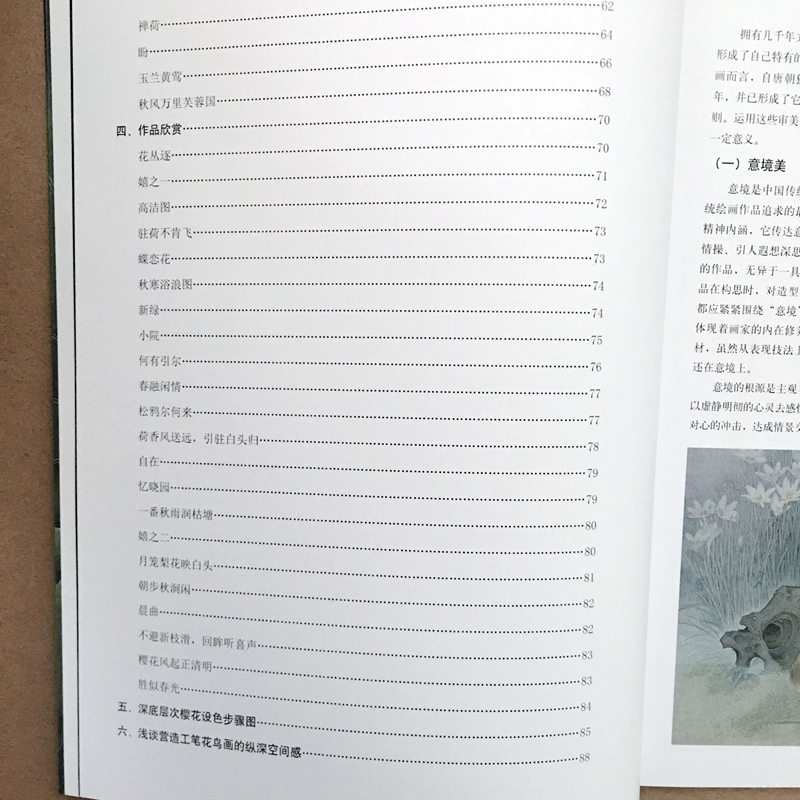 禅荷 62
盼 64
玉兰黄莺 66
秋风万里芙蓉国 68
四、作品欣赏 70
花丛逐 70
嬉之一 71
高洁图 72
驻荷不肯飞 73
蝶恋花 73
秋寒浴浪图 74
新绿 74
小院 75
何有引尔 76
春融闲情 77
松鸦尔何来 77
荷香风送远，引驻白头归 78
自在 79
忆晓园 79
一番秋雨润枯塘 80
嬉之二 80
月笼梨花映白头 81
朝步秋涧闲 82
晨曲 82
不避新枝滑，回眸听喜声 83
樱花风起正清明 83
胜似春光 84
五、深底层次樱花设色步骤图 85
六、浅谈营造工笔花鸟画的纵深空间感 88
拥有几千年
形成了自己特有的
画而言，自唐朝
年，并已形成了它
则。运用这些审美
一定意义。
（一）意境美
意境是中国传统
统绘画作品追求的是
精神内涵，它传达意
情操、引人遐想深思
的作品，无异于一具
品在构思时，对造型
都应紧紧围绕“意境”
体现着画家的内在修养
材，虽然从表现技法上
还在意境上。
意境的根源是主观
以虚静明彻的心灵去感悟
对心的冲击，达成情景交